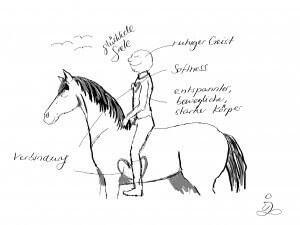 glückliche
Seele
ruhiger Geist
Softness
entspannter,
beweglicher,
starker Körper
Verbindung